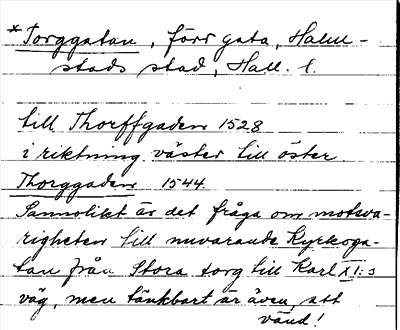 *Torggatan, förr gata, Halm-
stads stad, Hall. l.
till Thorffgaden 1528
i riktning väster till öster
Thorggaden 1544
Sannolikt är det fråga om motsva-
righeten till nuvarande Kyrkoga-
tan från Stora torg till Karl XI:s
väg, men tänkbart är även, att
vänd!